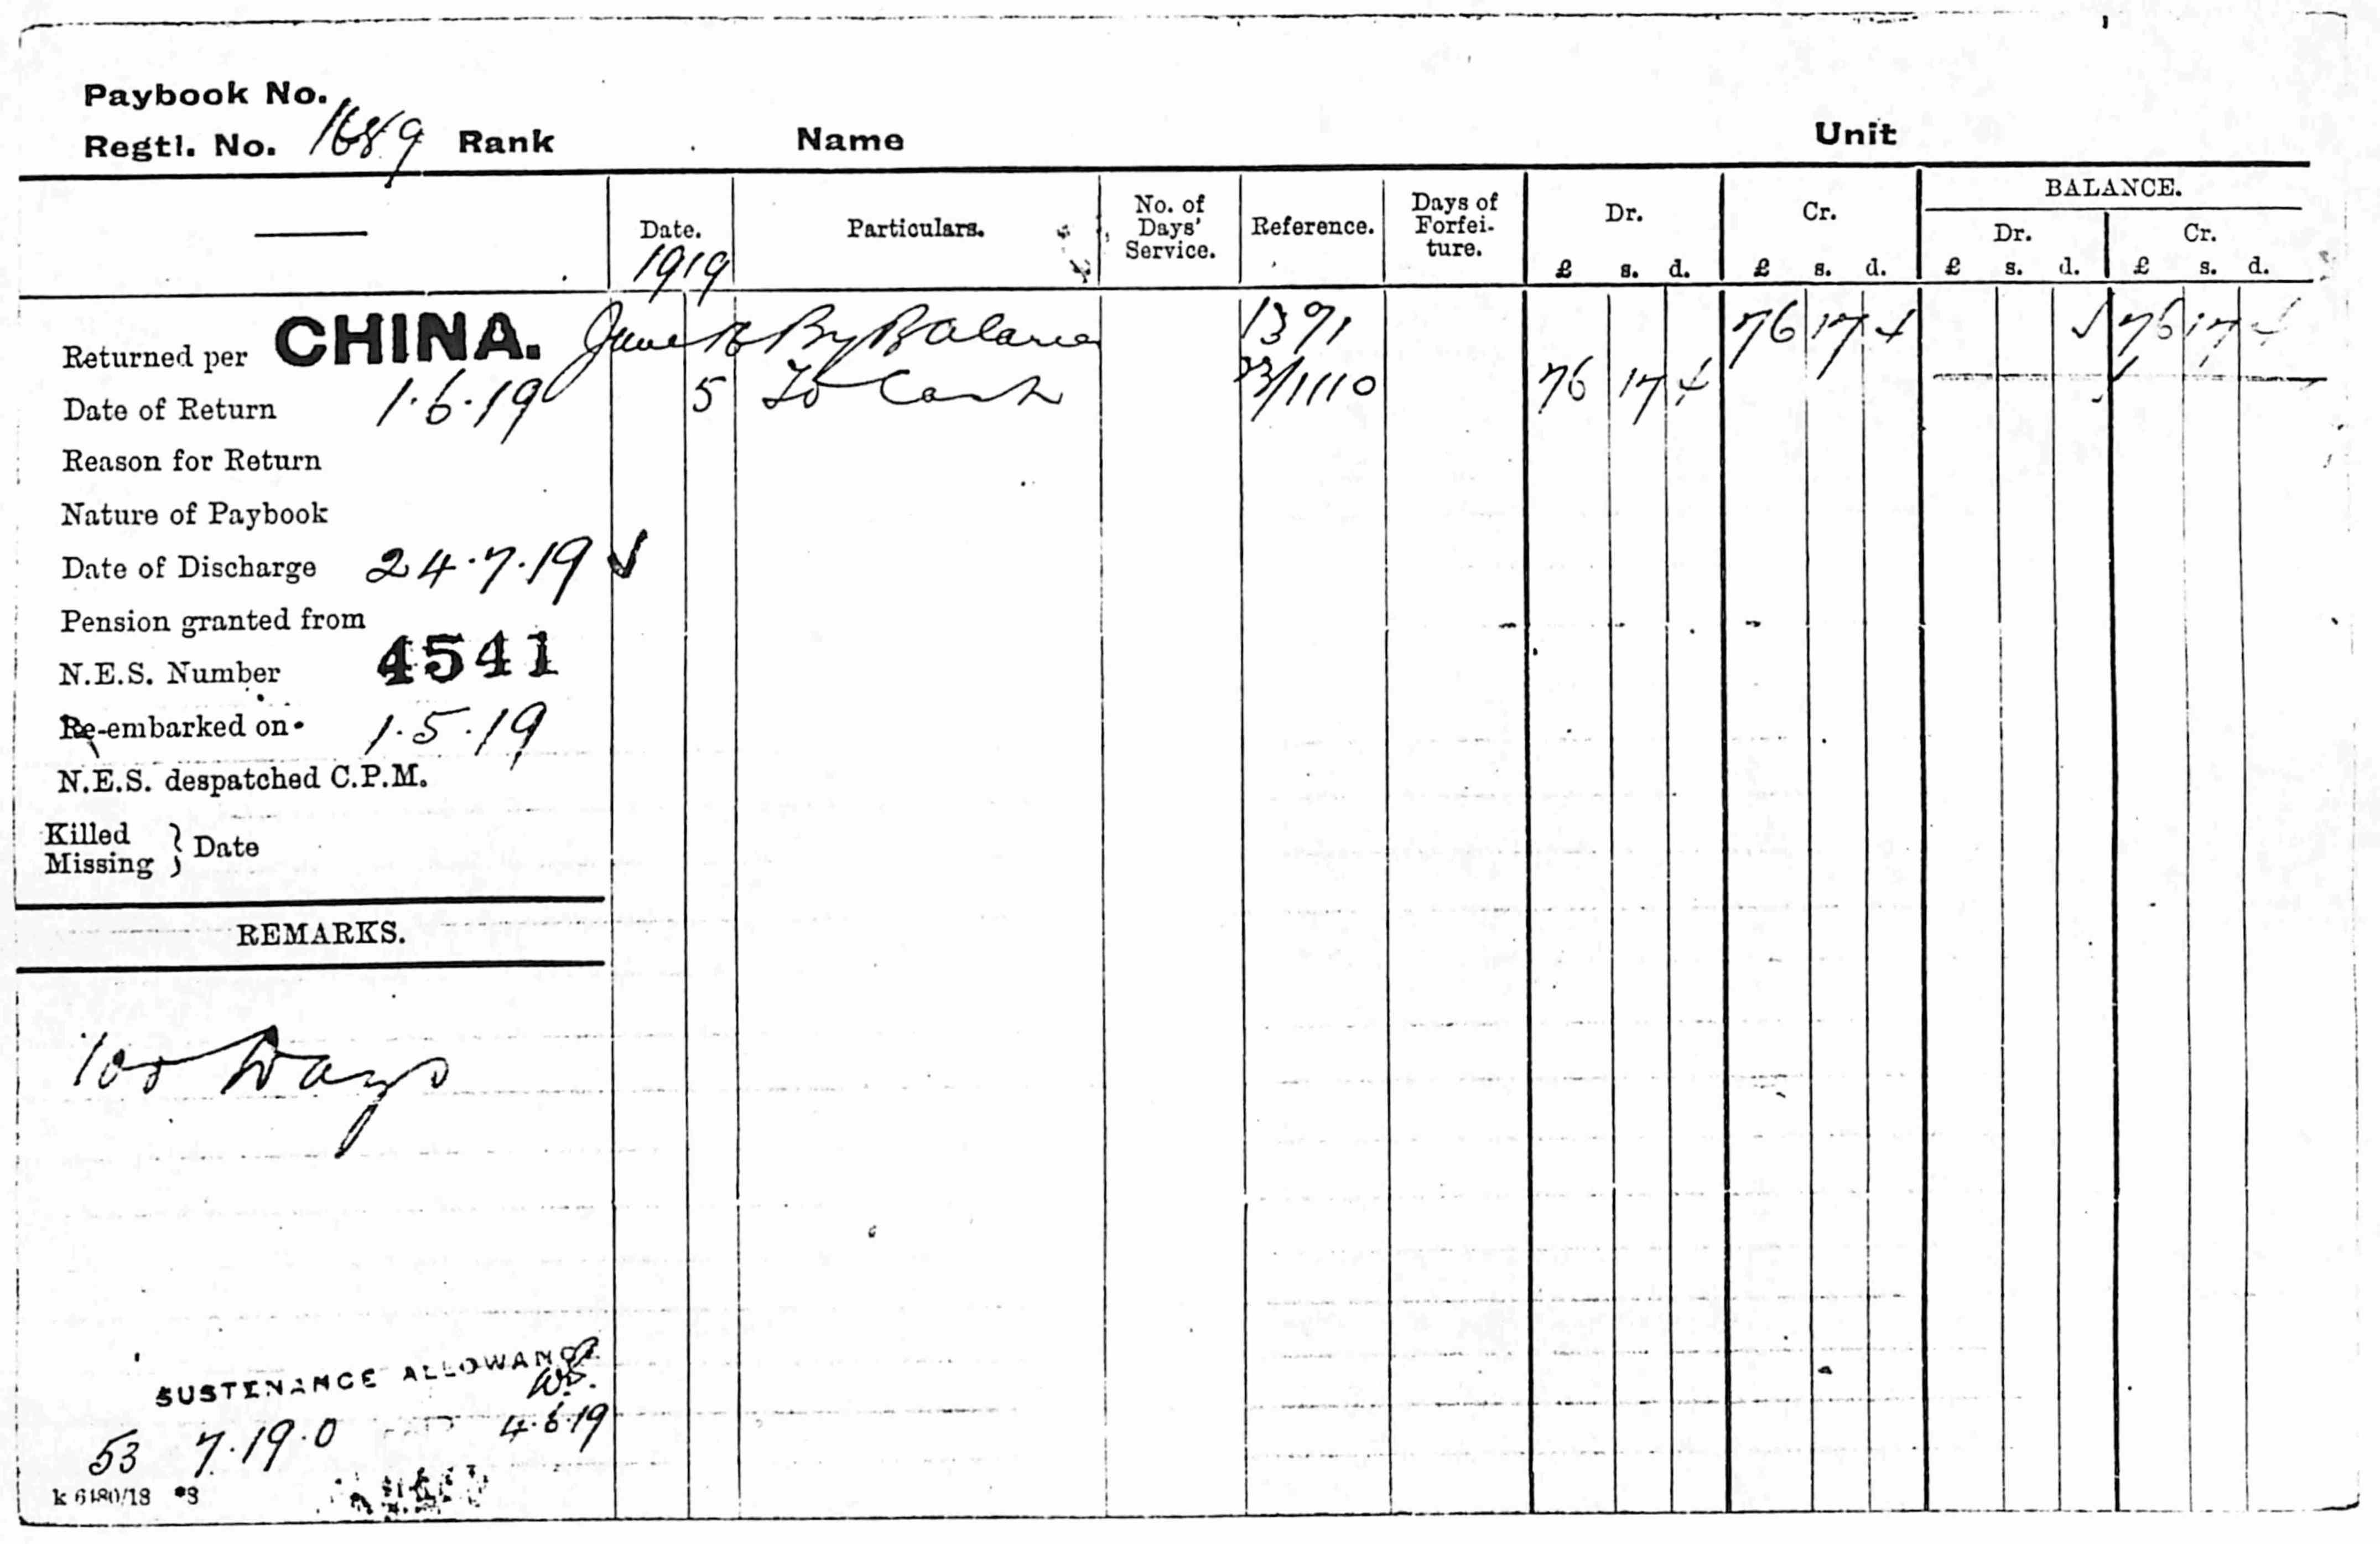 Paybook No.
Regtl. No. 1689 Rank Name Unit
Date. Particulars. No. of Days' Service. Reference. Days of Forfei- ture. Dr. Cr. BALANCE.
Dr. Cr.
£ s. d. £ s. d. £ s. d. £ s. d.
1919
Returned per CHINA. June By Balance 1391 76 17 4 76 17 4
Date of Return 1.6.19 5 To Cash 33/1110 76 17 4
Reason for Return
Nature of Paybook
Date of Discharge 24.7.19 ✓
Pension granted from
N.E.S. Number 4541
Re-embarked on 1.5.19
N.E.S. despatched C.P.M.
Killed
Missing } Date
REMARKS.
Days
SUSTENANCE ALLOWANCE
53 7.19.0 4.6.19
k 6480/18 *3